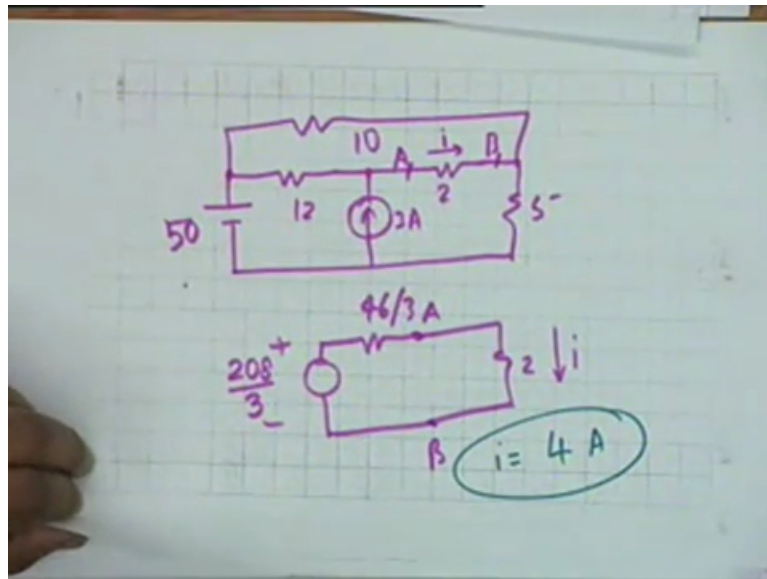 10
A i B
12
2
50
3A
5
46/3 A
208/3
+
-
2
i
B
i = 4 A